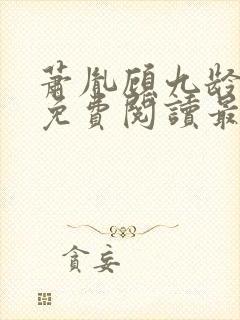 蕭胤顧九齡
免費閱讀最
貪妄